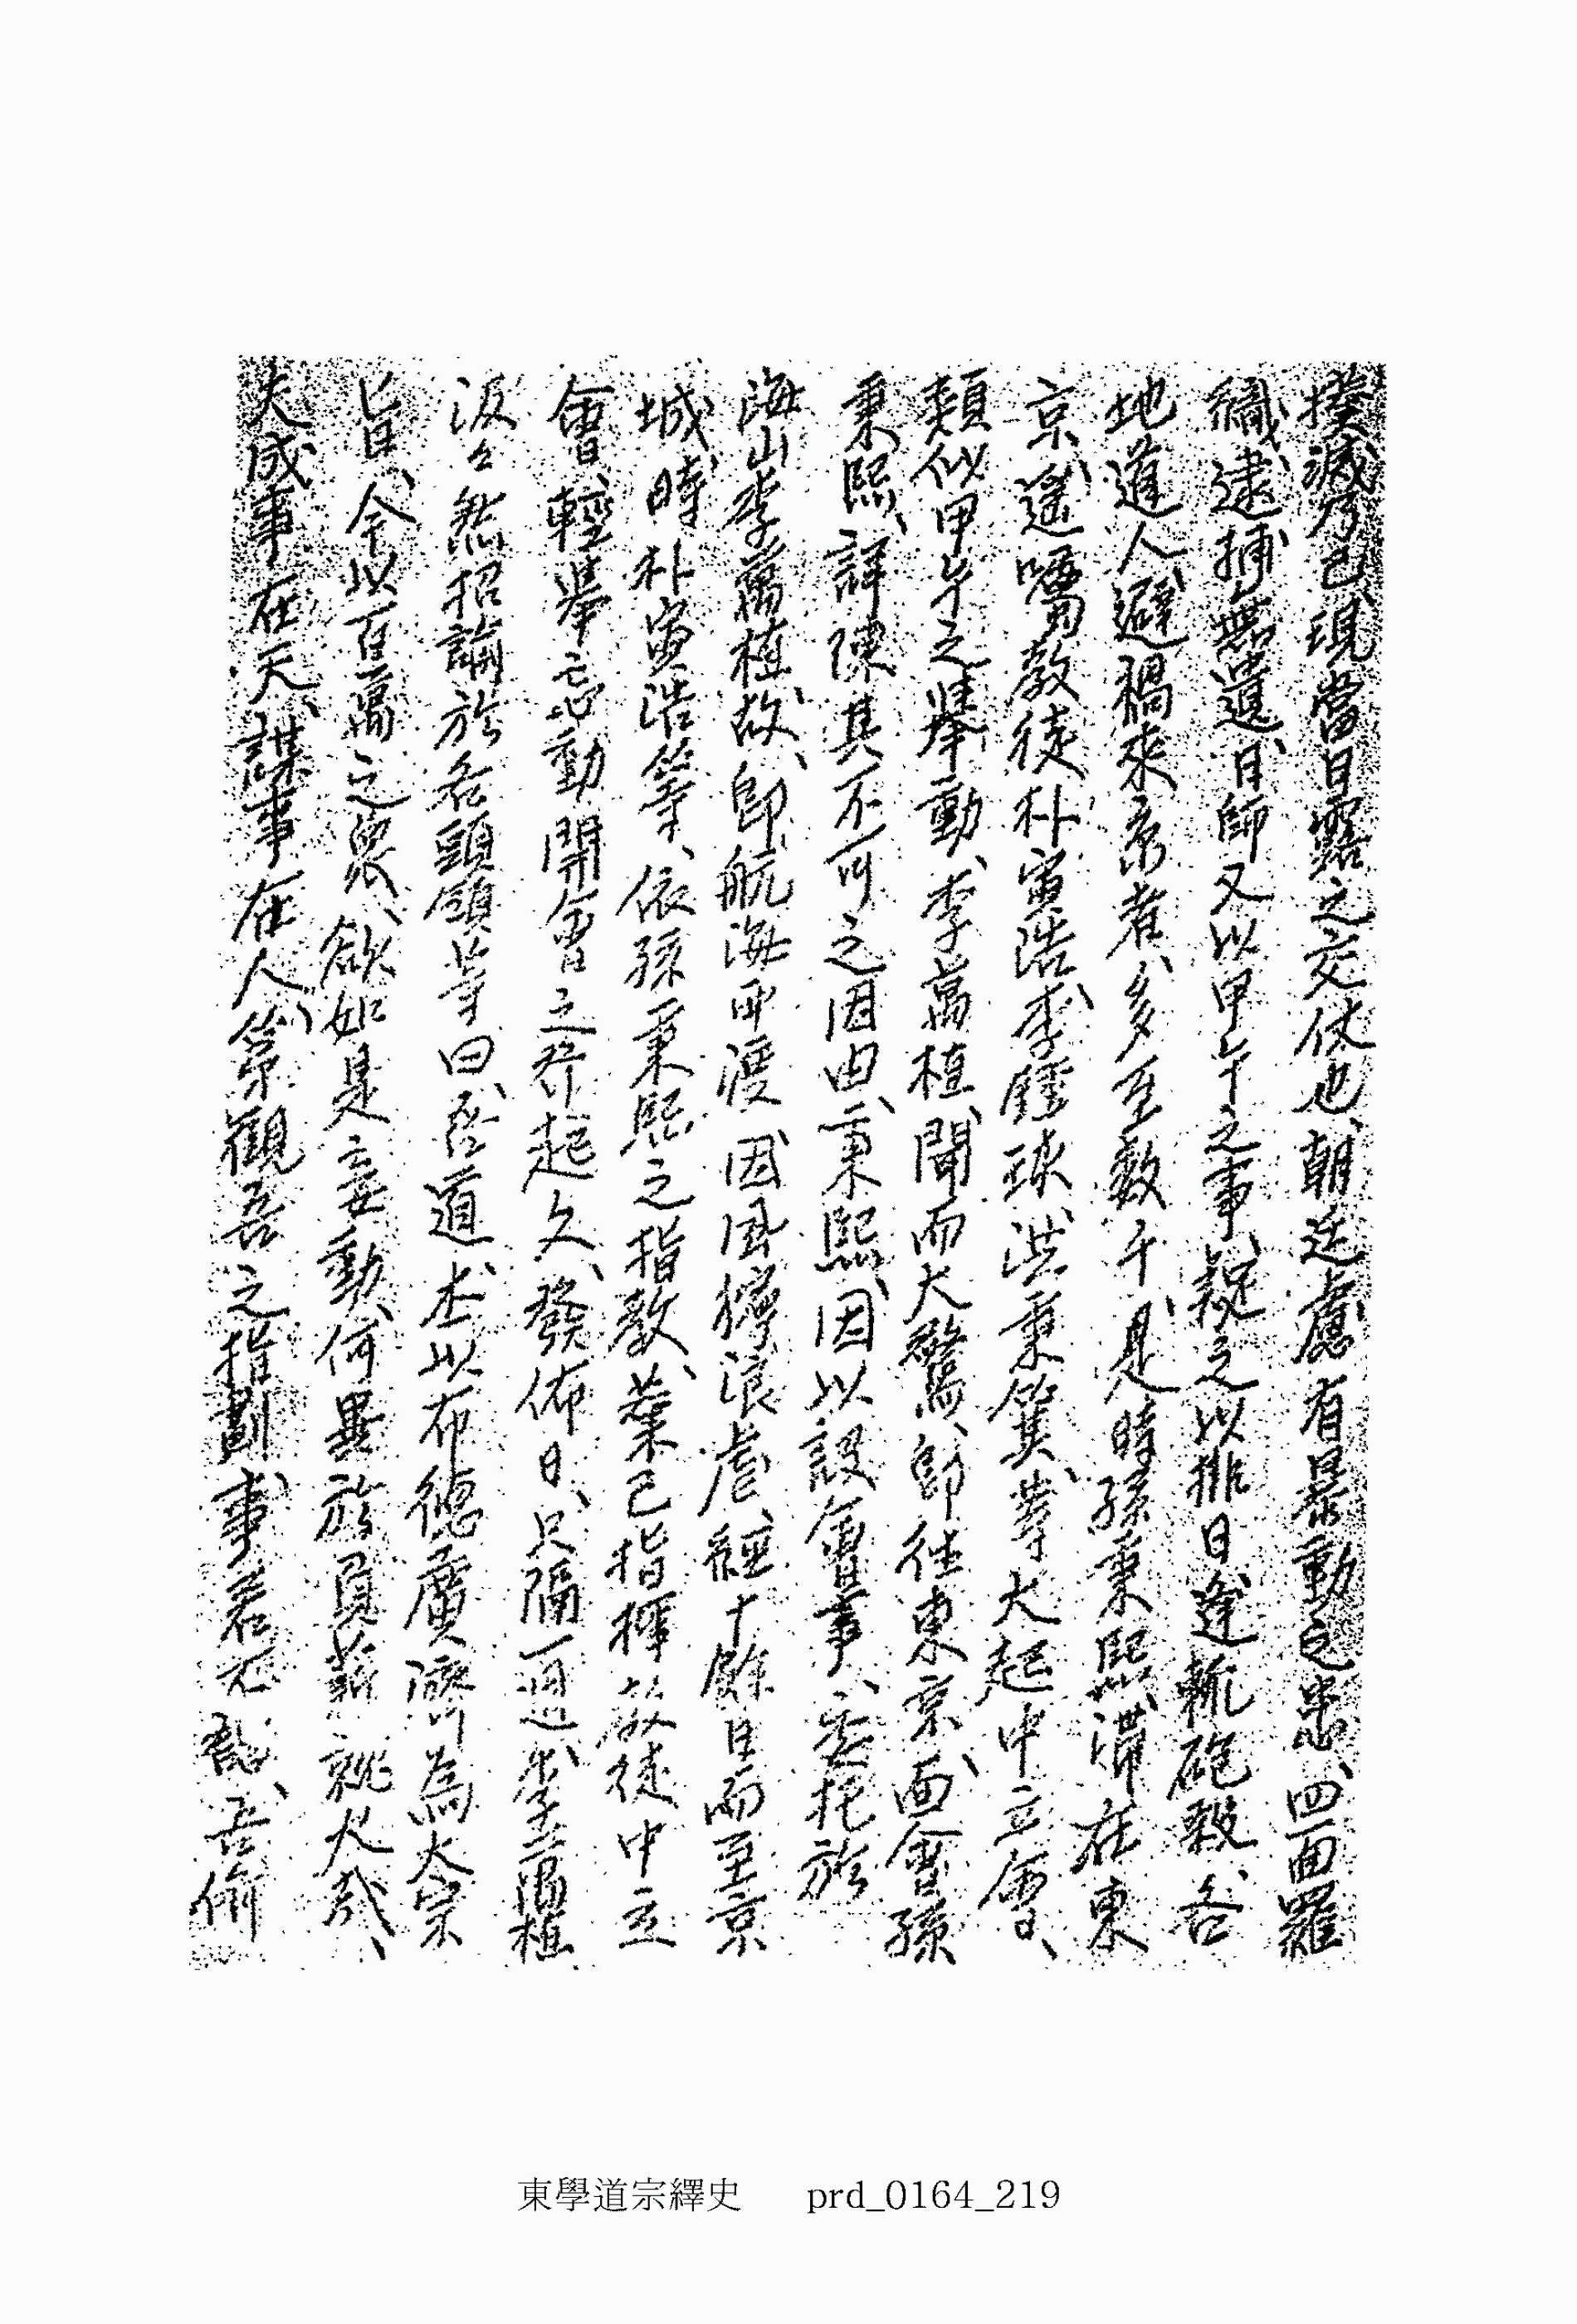 撲滅乃已、現當日露之交仗也、朝廷慮有暴動之患、四面羅
織、逮捕無遺、日師又以甲午之事、疑之以排日、逢輒砲殺、各
地道人避禍來京者、多至數千、是時孫秉熙、滯在東
京、遙囑教徒朴寅浩、李鍾球、洪秉箕等、大起中立會、
類似甲午之擧動、李萬植、聞而大驚、卽往東京、面會孫
秉熙、詳陳其不可之因由、秉熙、因以設會事、委托於
海山李萬植、故、卽航海而渡、因風擰浪虐、經十餘日而至京
城、時朴寅浩等、依孫秉熙之指教、業已指揮教徒、中立
會輕擧忘動、開會之、起久、發佈日、只隔一週、李萬植
汲々然招諭於各頭領等曰、吾道、本以布德廣濟、爲大宗
旨、今以百萬之衆、欲如是妄動、何異於負薪就火哉、
夫成事在天、謀事在人、第觀吾之指劃事、若不 、吾倆